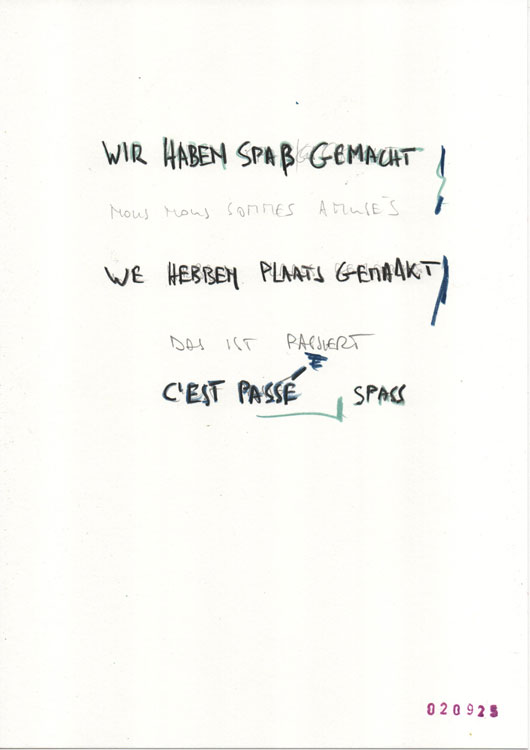 WIR HABEN SPAß GEMACHT
NOUS NOUS SOMMES AMUSÉS
WE HEBBEN PLAATS GEMAAKT
DAS IST PASSIERT
C'EST PASSE SPASS
020925